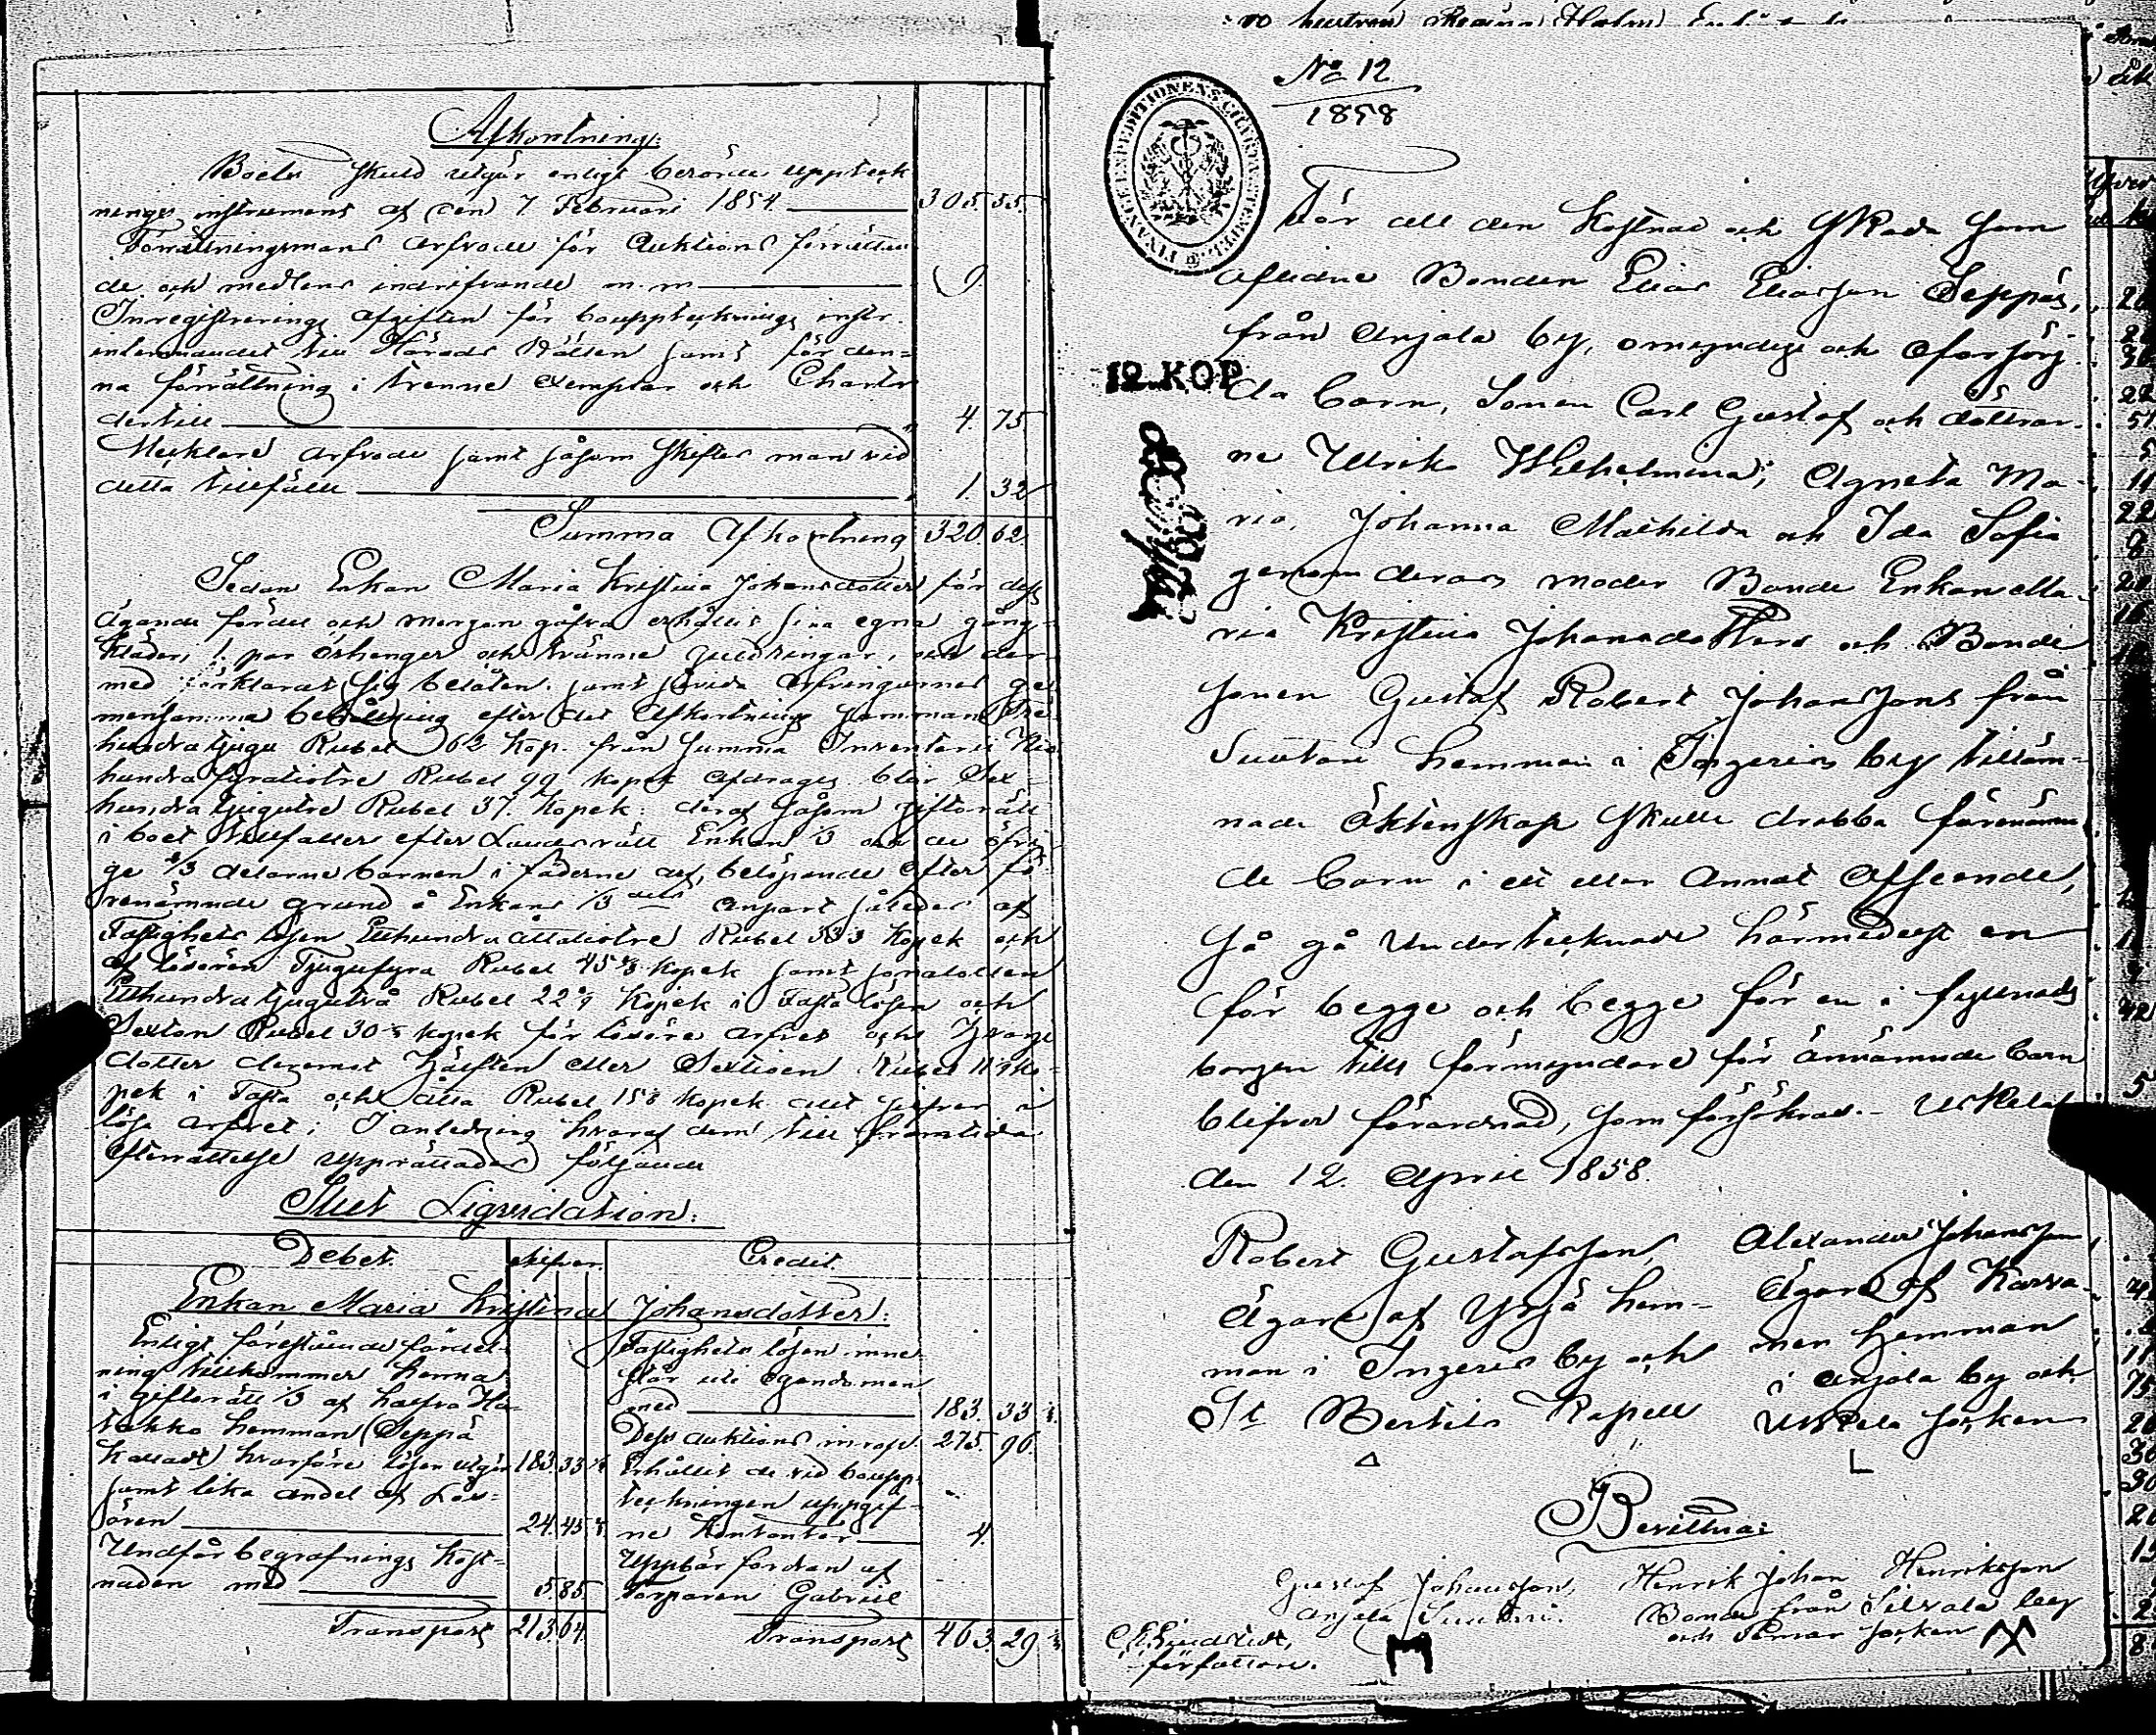 Afkortning:
Boets skuld utgör enligt berörde uppteck
nings instrument af den 7 Februari 1854. 305. 55.
Förrättningsmans arfvode för Auktions förrättan
de och medlens indrifvande m.m. 9.
Inregistrerings afgiften för bouppteknings instr.
inlemnandet till Härads Rätten samt för den-
na förrättning i trenne exemplar och Charta
dertill 4. 75
Mecklares arfvode samt såsom skiftes man vid
detta tillfälle 1. 32
Summa Afkortning 320. 62.
Sedan Enkan Maria Kristina Johansdotter för dess
ägande fördel och morgon gåfva erhållit sina egna gång-
kläder, 1 par örhengen och tvänne guldringar, och der-
med förklarat sig belåten, samt sedan Arfvingarnes ge
mensamma behållning efter det Afkortnings summan Tre
hundratjugu Rubel 62 Kop. från summa Inventarii Nio
hundra fyratiotre Rubel 99 kopek afdrages blir Sex-
hundra tjugutre Rubel 37. Kopek: deraf såsom giftorätt
i boet tillfaller efter Landsrätt Enkan 1/3 och de öfri
ge 2/3 delarne barnen i fäderne arf, belöpande efter fö
renämnde grund å Enkans 1/3 dels anpart således af
Fastighets lösen Etthundra åttatiotre Rubel 33 Kopek och
af lösören Tjugufyra Rubel 45 Kopek samt sonalotten
Etthundra tjugutvå Rubel 22 Kopek i Fasta lösen och
Sexton Rubel 30 kopek för lösöre arfvet och hvarje
dotter deremot Hälften eller Sextioen Rubel 11 Ko-
pek i Fasta och åtta Rubel 15 kopek allt silfver i
lösa arfvet; I anledning hvaraf dem till framtida
efterrättelse upprättades följande
Slut Liquidation:
Debet. silfver. Credit.
Enkan Maria Kristina Johansdotter:
Enligt förestående fördel-
ning tillkommer henne
i giftorätt 1/3 af halfva Ha-
takko hemman (Seppä
kalladt) hvarföre lösen utgör 183. 33
samt lika andel af Lös-
ören 24. 45
Undfår begrafnings kost-
naden med 5. 85.
Transport 213. 64.
Fastighets lösen inne
står uti egendomen
med 183. 33
Dess auktions inrop 275. 96.
Erhållit de vid boupp-
teckningen uppgif-
ne Kontanter 4.
Uppbär fordran af
Torparen Gabriel
Transport 463. 29.
No 12
1858
FINANCE EXPEDITIONENS CHARTÆ STEMPEL
12 KOP
För all den kostnad och skada som
afledne Bonden Elias Eliasson Seppäs,
från Anjala by, omyndige och oförsörj-
da barn, Sonen Carl Gustaf och döttrar-
ne Ulrika Wilhelmina, Agneta Ma-
ria, Johanna Mathilda och Ida Sofia
genom deras moder Bonde Enkan Ma-
ria Kristina Johansdotters och Bonde
sonen Gustaf Robert Johanssons från
Suutari hemman i Ingeris by tilläm-
nade äktenskap skulle drabba förenämn
de barn i ett eller annat afseende,
så gå Undertecknade härmedelst en
för begge och begge för en i fyllnads
borgen tills förmyndare för ännämnde barn
blifver förordnad, som försäkras. Uskela
den 12. April 1858.
Robert Gustafsson,
Ägare af Yrjä hem-
man i Ingeris by och
St Bertils Kapell
Alexander Johansson
Ägare af Karva-
men hemman
i Anjala by och
Uskela socken
Bevittna:
Gustaf Johansson,
Anjala Suutari.
Henrik Johan Henriksson
Bonde från
och socken
författare.